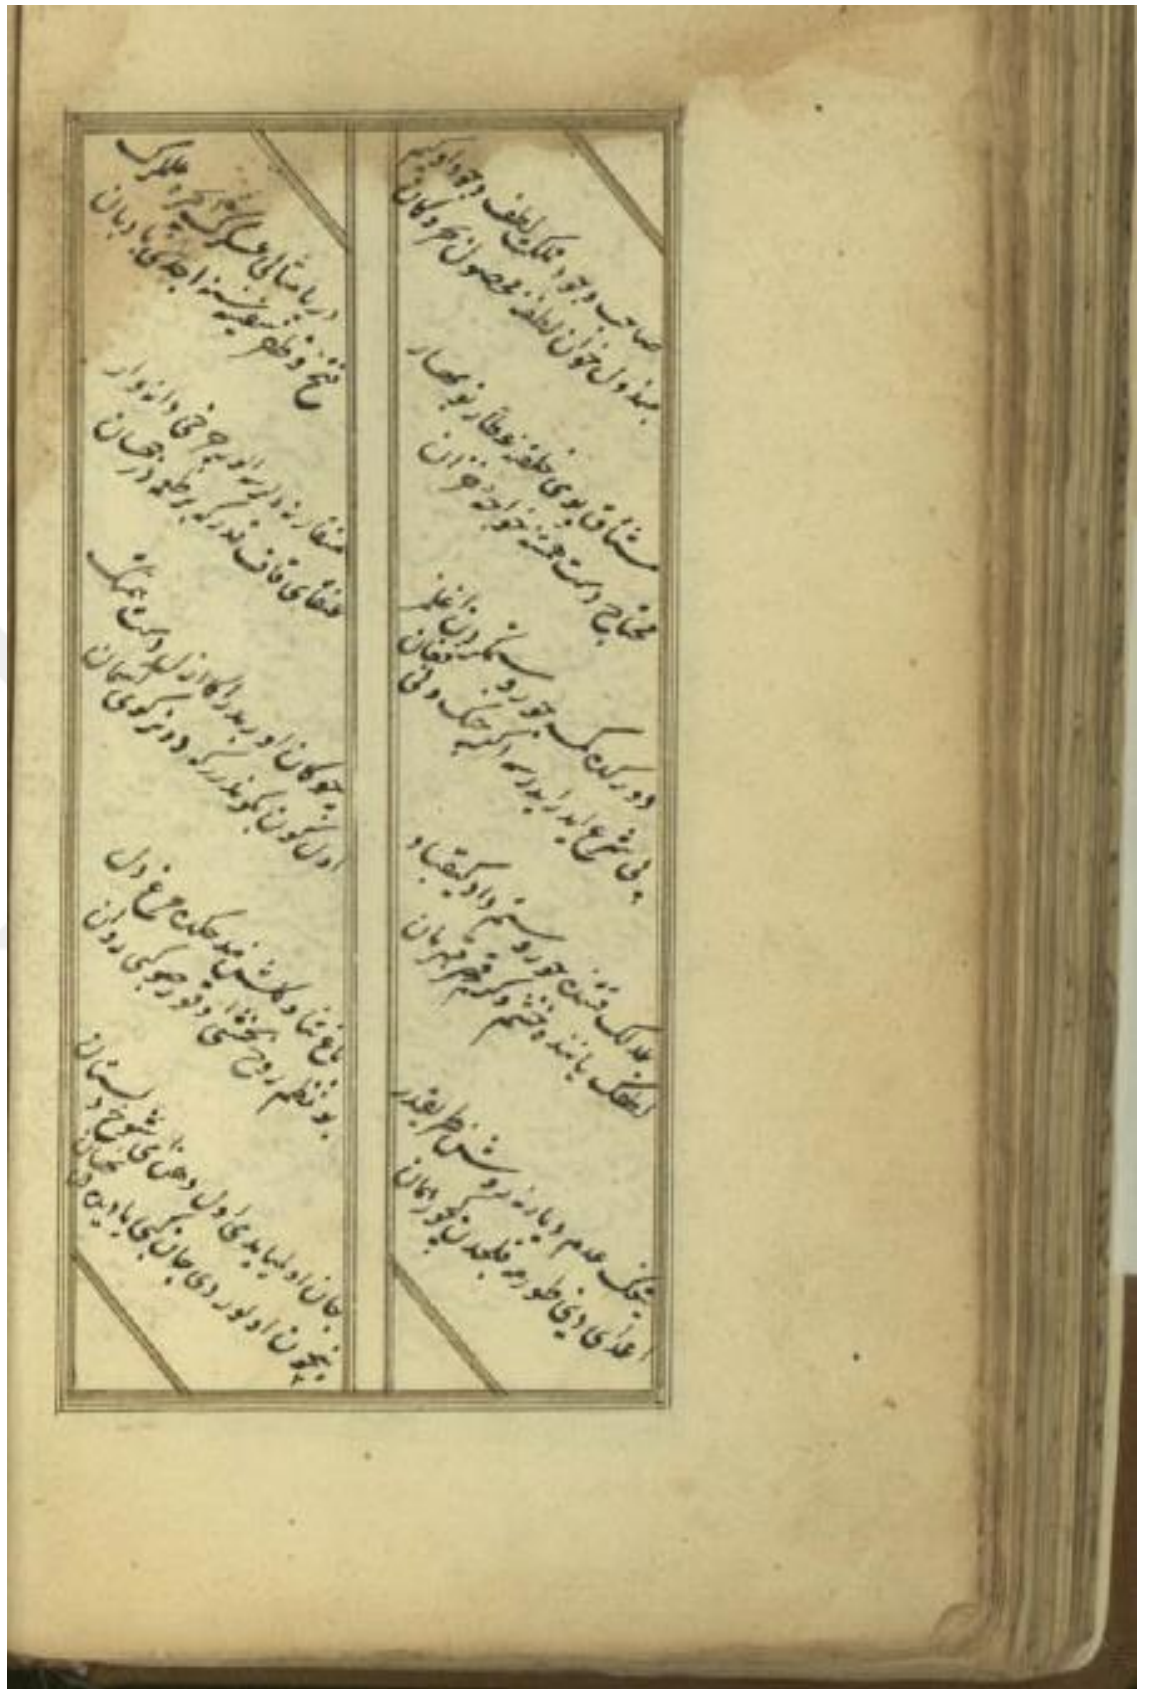 صاحب وجود ملک لطف وجود و کرم
مبذول خوان لطفنه محصول بحر و کان
مشتاق بوی خلقنه عطار نوبهار
محتاج دست همتنه خواجه خزان
دورکده جور و ستمدن اغلمز
نی شرع ایدر ایدرسه اکر چنک و نی فغان
عدلک قتنده جور و ستم داد کیقباد
لطفک یاننده خشم و کرم قهر قهرمان
تیغک عدم دیارنه روشن طریقدر
اعدای دینی طورمه قلجدن کچور امان
دریا مثالی عسکرک ایچره علملرک
فتح و ظفر سفینه سنه اچدی بادبان
منقارنه الور بو چرخی دانه وار
عنقای قاف قدرکه بو طعمه در جهان
چوکان اوریدر اکا ازل دست همتک
اول کون بکوندرر که دونر کوی آسمان
باغ ثنا و کلشن مدحکده مرغ دل
بو نظم روح بخشی اوقور جوی روان
جان اولمیایدی اول دهن ای شوخ دلستان
نیچون اولوردی جان کبی یا دیده دن نهان